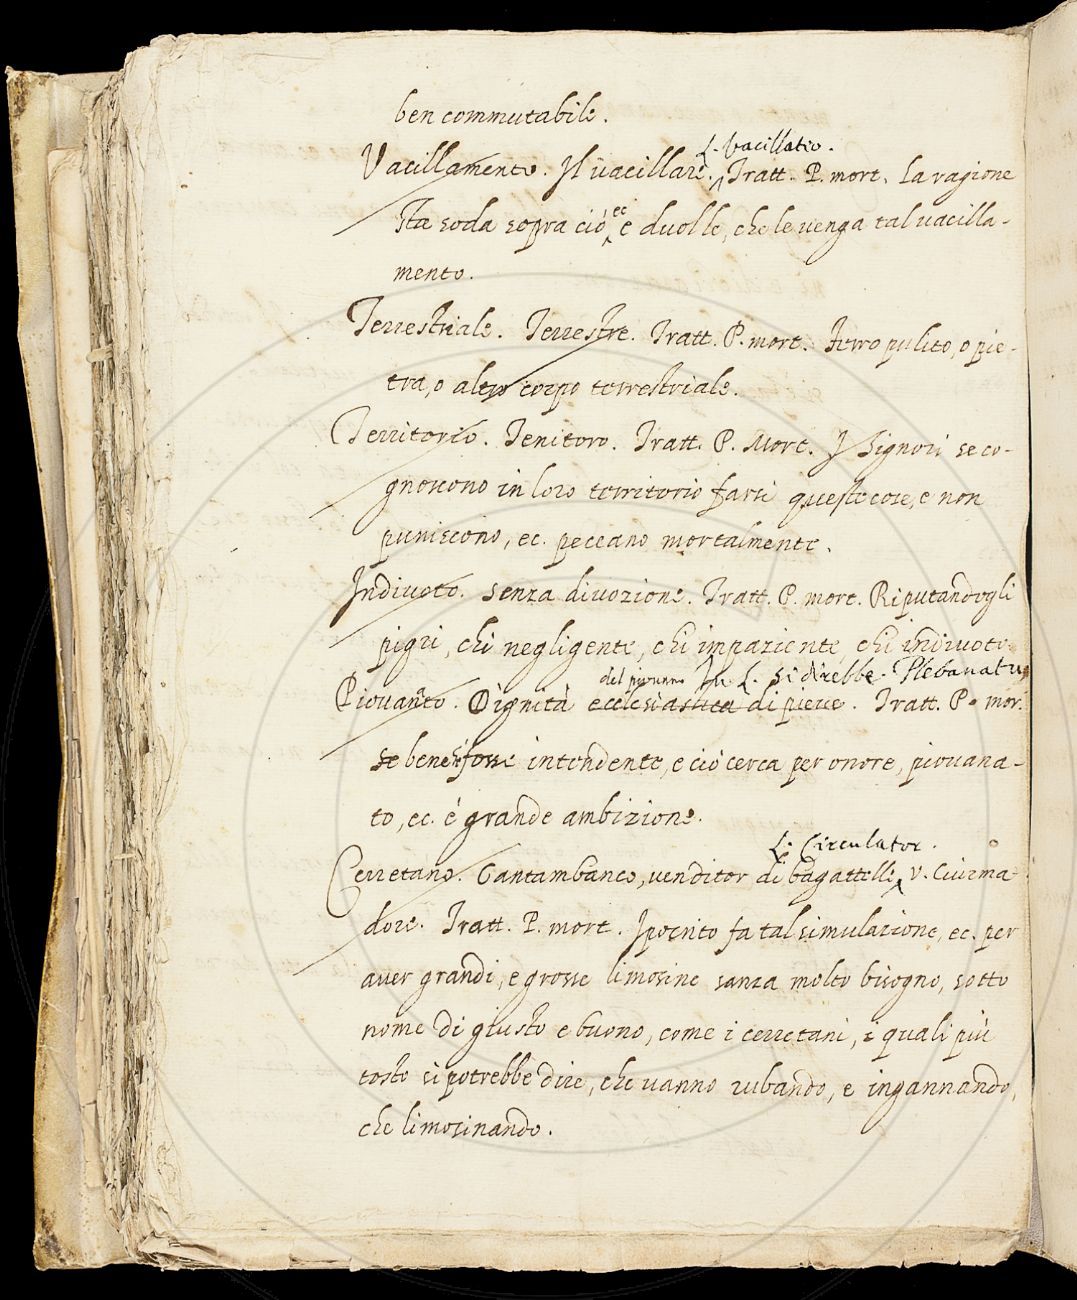 ben commutabile.
L. vacillatio.
Vacillamento. Il vacillare. Tratt. P. mort. La ragione
sta soda sopra ciò, ec è duolle, che le venga tal vacilla-
mento.
Terrestriale. Terrestre. Tratt. P. mort. Ferro pulito, o pie-
tra, o altro corpo terrestriale.
Territorio. Tenitoro. Tratt. P. Mort. I Signori se co-
gnoscono in loro territorio farsi queste cose, e non
puniscono, ec. peccano mortalmente.
Indivoto. Senza divozione. Tratt. P. mort. Riputandogli
pigri, chi negligente, chi impaziente, chi indivoto.
del piovano In L. si direbbe Plebanatus
Piovanato. Dignità ecclesiastica di pieve. Tratt. P. mor.
Se bene fosse intendente, e ciò cerca per onore, piovana-
to, ec. é grande ambizione.
L. Circulator.
Cerretano. Cantambanco, venditor di bagattelle, v. Ciurma-
dore. Tratt. P. mort. Ipocrito fa tal simulazione, ec. per
aver grandi, e grosse limosine sanza molto bisogno, sotto
nome di giusto e buono, come i cerretani, i quali più
tosto si potrebbe dire, che vanno rubando, e ingannando,
che limosinando.